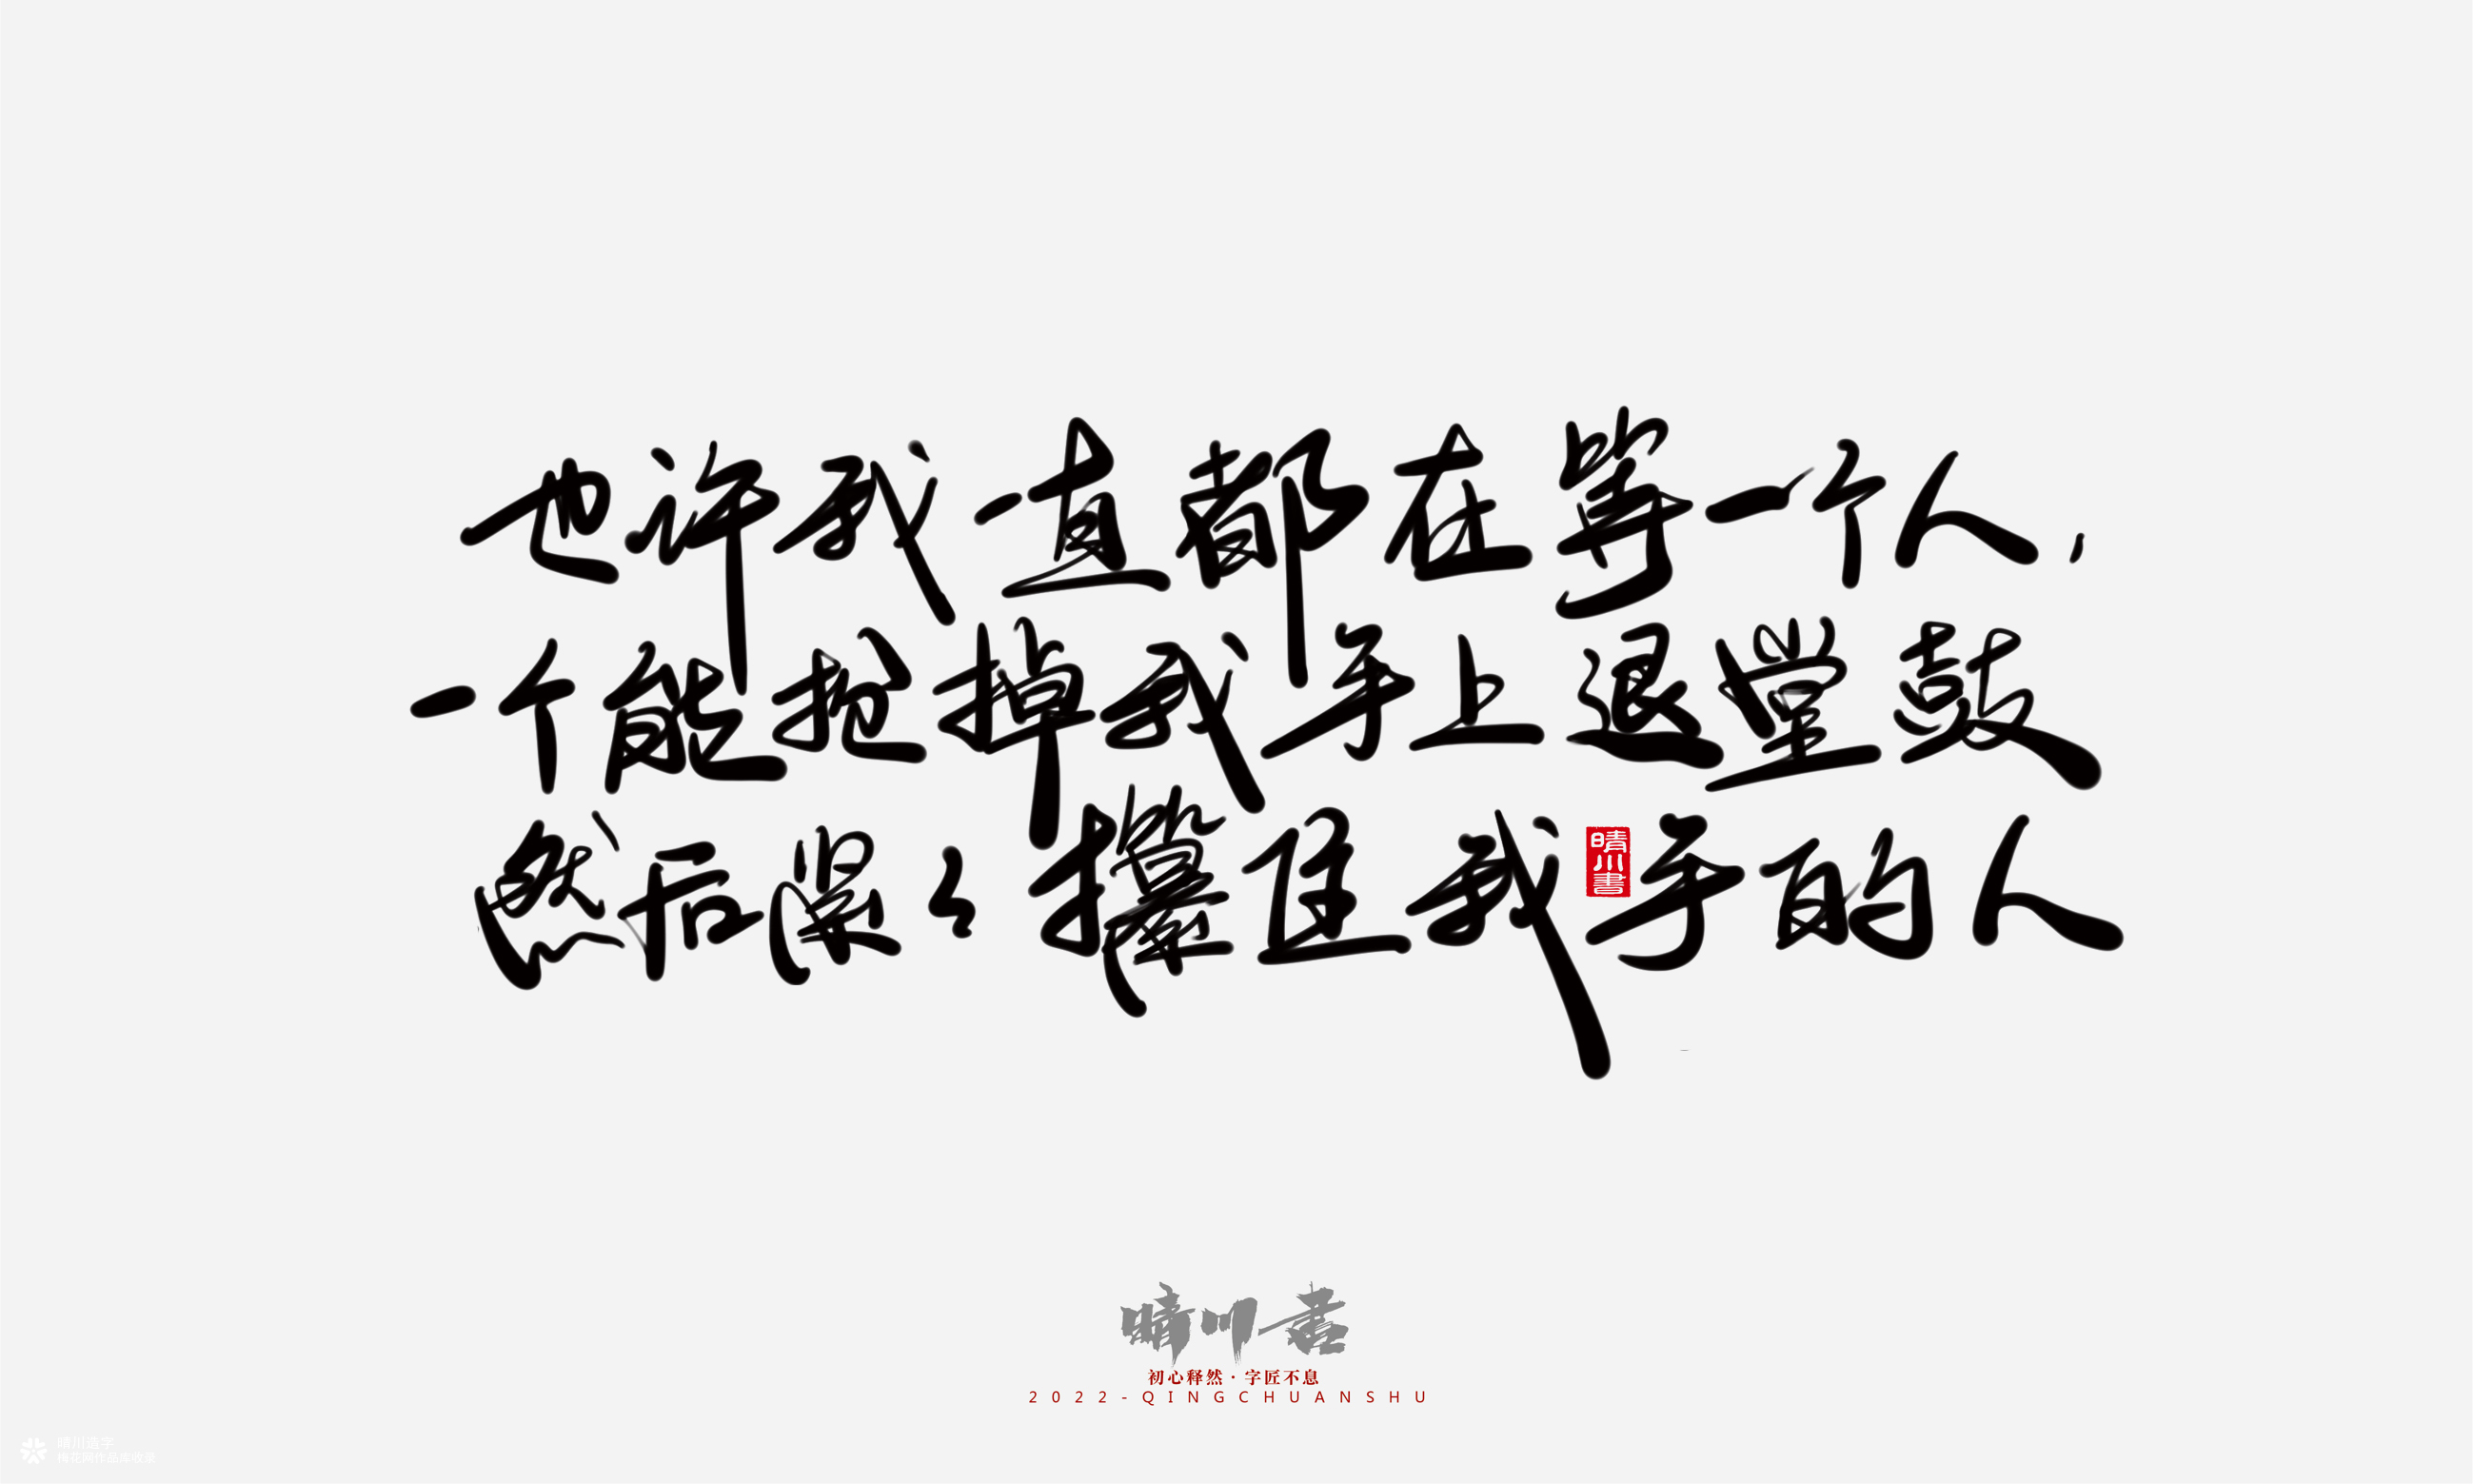 也许我一直都在等一个人，
一个能抢掉我手上退堂鼓
然后紧紧攥住我手的人
晴川書
晴川書
初心释然·字匠不息
2022-QINGCHUANSHU
晴川造字
梅花网作品库收录